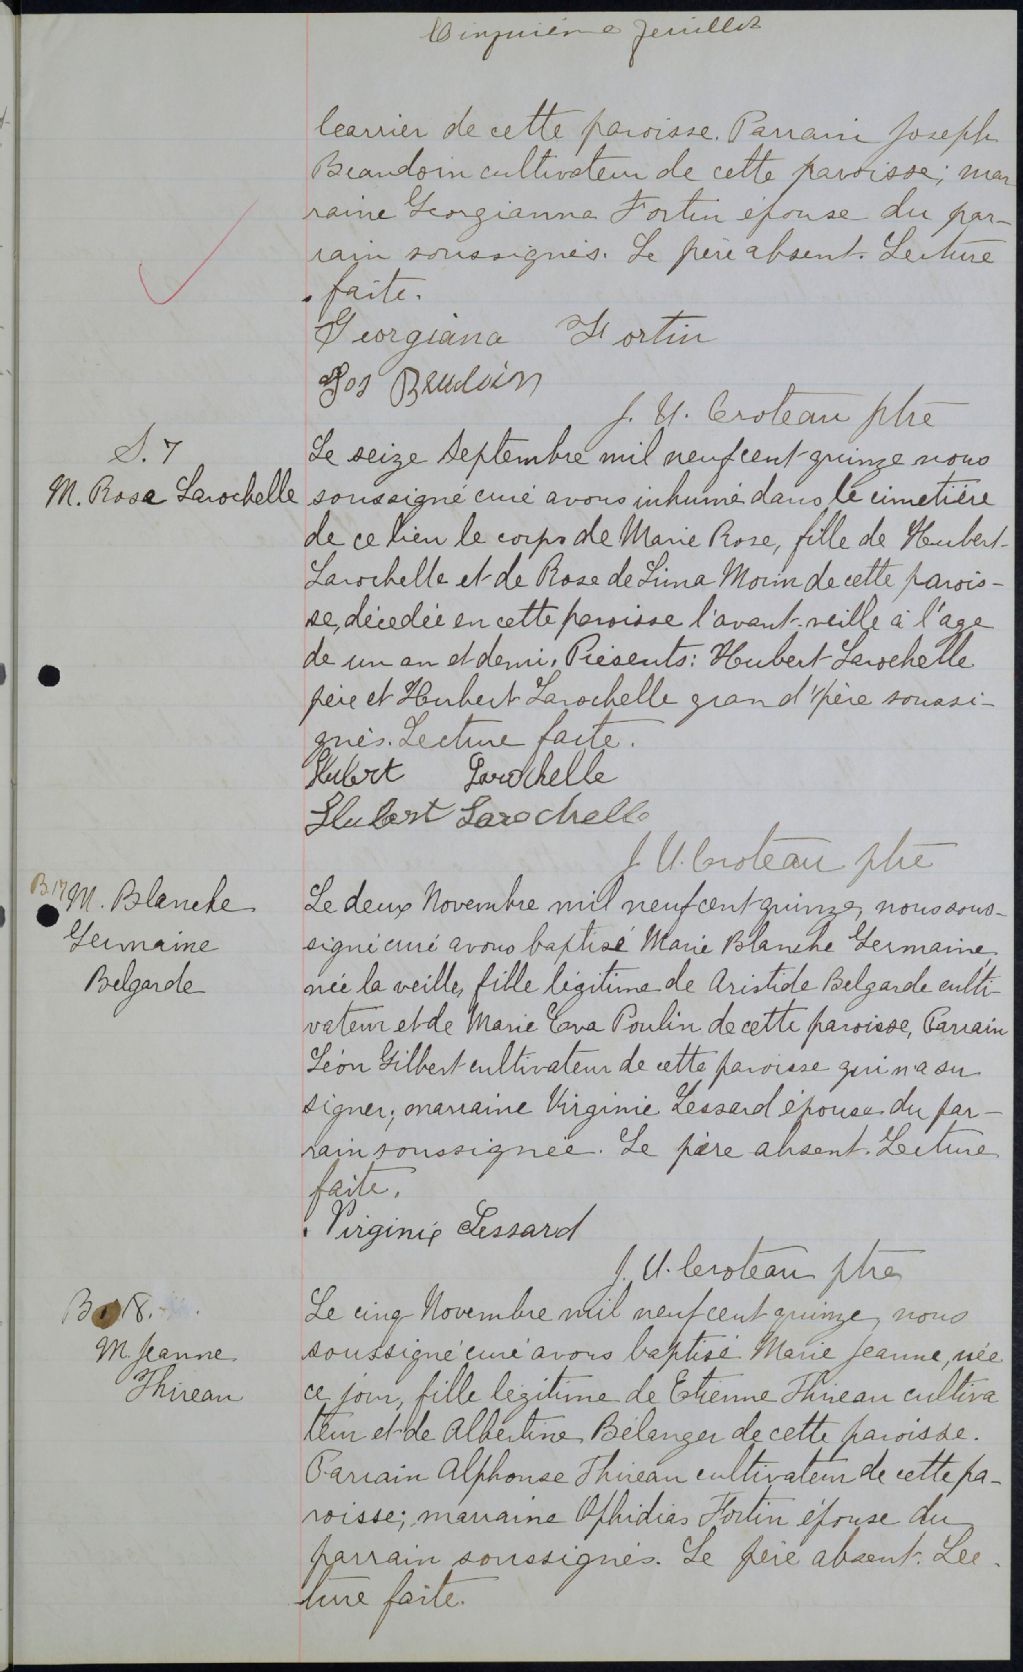 Cinquième feuillet
Carrier de cette paroisse. Parrain Joseph
Beaudoin cultivateur de cette paroisse; mar
raine Georgianna Fortin épouse du par-
rain soussignés. Le père absent. Lecture
faite.
Georgiana Fortin
Jos Beudoin
J. U. Croteau ptre
S. 7
M. Rose Larochelle
Le seize Septembre mil neuf cent quinze nous
soussigné curé avons inhumé dans le cimetière
de ce lieu le corps de Marie Rose, fille de Hubert
Larochelle et de Rose de Lima Morin de cette parois-
se, décédée en cette paroisse l'avant-veille à l'age
de un an et demi. Présents: Hubert Larochelle
père et Hubert Larochelle grand'père soussi-
gnés. Lecture faite.
Hubert Larochelle
Hubert Larochelle
J. U. Croteau ptre
B. 17
M. Blanche
Germaine
Belgarde
Le deux Novembre mil neuf cent quinze, nous sous-
signé curé avons baptisé Marie Blanche Germaine,
née la veille, fille légitime de Aristide Belgarde culti-
vateur et de Marie Eva Poulin de cette paroisse, Parrain
Léon Gilbert cultivateur de cette paroisse qui n'a su
signer; marraine Virginie Lessard épouse du par-
rain soussignée. Le père absent. Lecture
faite.
Virginie Lessard
J. U. Croteau ptre
B. 18.
M. Jeanne
Thireau
Le cinq Novembre mil neuf cent quinze, nous
soussigné curé avons baptisé Marie Jeanne, née
ce jour, fille légitime de Etienne Thireau cultiva
teur et de Albertine Bélanger de cette paroisse.
Parrain Alphonse Thireau cultivateur de cette pa-
roisse; marraine Ophidias Fortin épouse du
parrain soussignés. Le père absent. Lec-
ture faite.